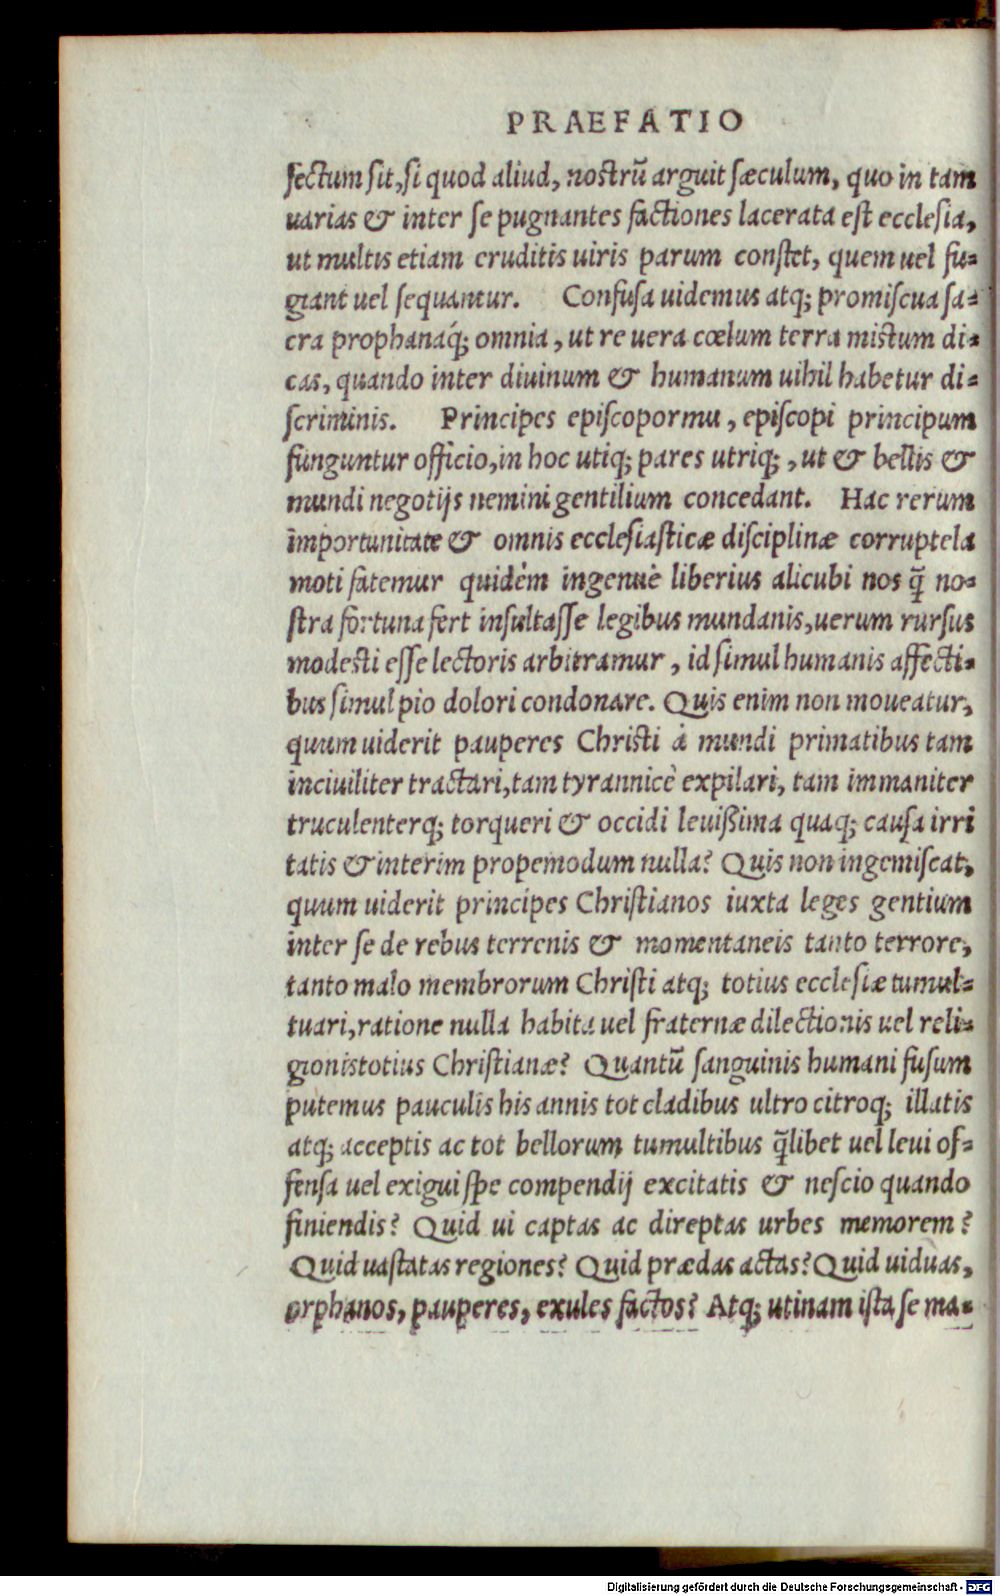 PRAEFATIO
fectum sit, si quod aliud, nostrũ arguit sæculum, quo in tam
uarias & inter se pugnantes factiones lacerata est ecclesia,
ut multis etiam eruditis uiris parum constet, quem uel fu=
giant uel sequantur. Confusa uidemus atq; promiscua sa=
cra prophanaq́; omnia, ut re uera cœlum terra mistum di=
cas, quando inter diuinum & humanum uihil habetur di=
scriminis. Principes episcopormu, episcopi principum
funguntur officio, in hoc utiq; pares utriq;, ut & bellis &
mundi negotijs nemini gentilium concedant. Hac rerum
importunitate & omnis ecclesiasticæ disciplinæ corruptela
moti fatemur quidem ingenuè liberius alicubi nos q̃ no=
stra fortuna fert insultasse legibus mundanis, uerum rursus
modesti esse lectoris arbitramur, id simul humanis affecti=
bus simul pio dolori condonare. Quis enim non moueatur,
quum uiderit pauperes Christi à mundi primatibus tam
inciuiliter tractari, tam tyrannicè expilari, tam immaniter
truculenterq; torqueri & occidi leuißima quaq; causa irri
tatis & interim propemodum nulla? Quis non ingemiscat,
quum uiderit principes Christianos iuxta leges gentium
inter se de rebus terrenis & momentaneis tanto terrore,
tanto malo membrorum Christi atq; totius ecclesiæ tumul=
tuari, ratione nulla habita uel fraternæ dilectionis uel reli=
gionis totius Christianæ? Quantũ sanguinis humani fusum
putemus pauculis his annis tot cladibus ultro citroq; illatis
atq; acceptis ac tot bellorum tumultibus q̃libet uel leui of=
fensa uel exigui spe compendij excitatis & nescio quando
finiendis? Quid ui captas ac direptas urbes memorem?
Quid uastatas regiones? Quid prædas actas? Quid uiduas,
orphanos, pauperes, exules factos? Atq; utinam ista se ma=
Digitalisierung gefördert durch die Deutsche Forschungsgemeinschaft - DFG